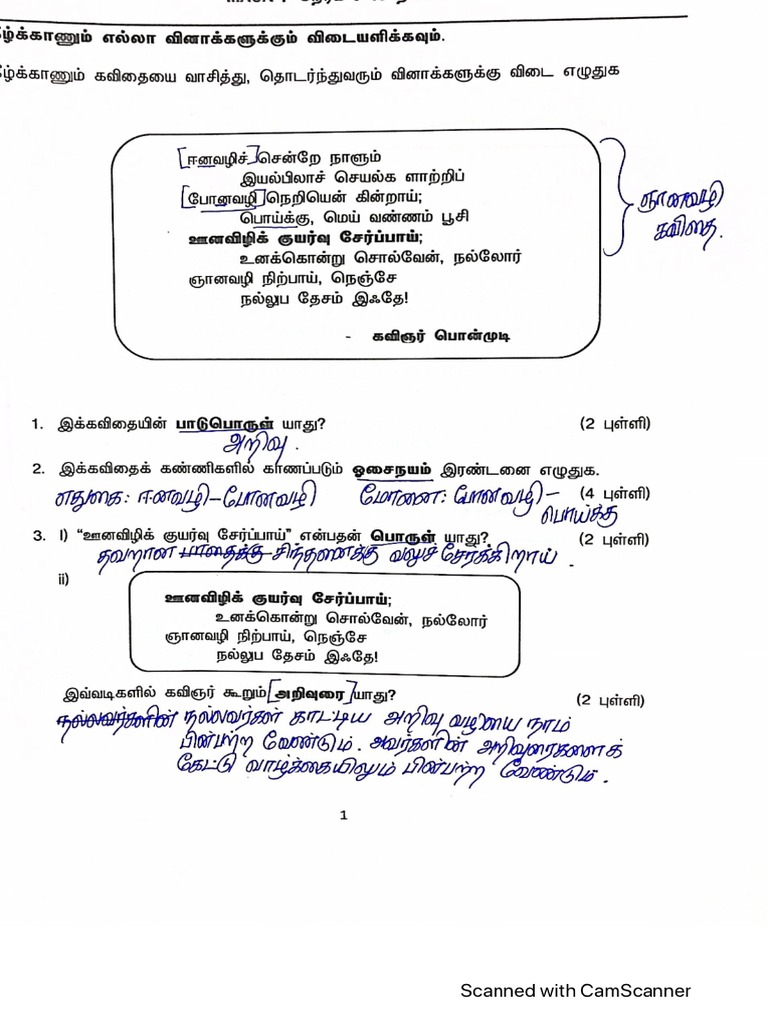 கீழ்க்காணும் எல்லா வினாக்களுக்கும் விடையளிக்கவும்.
கீழ்க்காணும் கவிதையை வாசித்து, தொடர்ந்துவரும் வினாக்களுக்கு விடை எழுதுக
[ஈனவழிச்] சென்றே நாளும்
இயல்பிலாச் செயல்க ளாற்றிப்
[போனவழி] நெறியென் கின்றாய்;
பொய்க்கு, மெய் வண்ணம் பூசி
ஊனவிழிக் குயர்வு சேர்ப்பாய்;
உனக்கொன்று சொல்வேன், நல்லோர்
ஞானவழி நிற்பாய், நெஞ்சே
நல்லுப தேசம் இஃதே!
- கவிஞர் பொன்முடி
ஞானவழி
கவிதை.
1. இக்கவிதையின் பாடுபொருள் யாது? (2 புள்ளி)
அறிவு.
2. இக்கவிதைக் கண்ணிகளில் காணப்படும் ஓசைநயம் இரண்டனை எழுதுக.
எதுகை: ஈனவழி – போனவழி மோனை: போனவழி – (4 புள்ளி)
பொய்க்கு
3. I) "ஊனவிழிக் குயர்வு சேர்ப்பாய்" என்பதன் பொருள் யாது? (2 புள்ளி)
தவறான பாதைக்கு சிந்தனைக்கு வலுச் சேர்க்கிறாய்.
ii)
ஊனவிழிக் குயர்வு சேர்ப்பாய்;
உனக்கொன்று சொல்வேன், நல்லோர்
ஞானவழி நிற்பாய், நெஞ்சே
நல்லுப தேசம் இஃதே!
இவ்வடிகளில் கவிஞர் கூறும் [அறிவுரை] யாது? (2 புள்ளி)
நல்லவர்களின் நல்லவர்கள் காட்டிய அறிவு வழியை நாம்
பின்பற்ற வேண்டும். அவர்களின் அறிவுரைகளைக்
கேட்டு வாழ்க்கையிலும் பின்பற்ற வேண்டும்.
1
Scanned with CamScanner